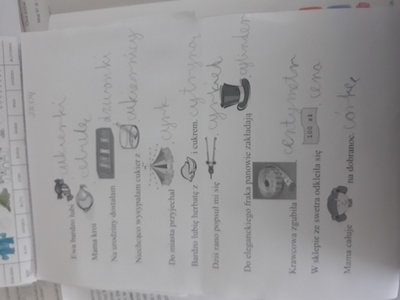 Ewa bardzo lubi cukierki
Mama kroi cebulę
Na urodziny dostałam dzwonki
Niechcący wysypałam cukier z cukiernicy
Do miasta przyjechał cyrk
Bardzo lubię herbatę z cytryną i cukrem.
Dziś rano popsuł mi się cyrkiel
Do eleganckiego fraka panowie zakładają cylinder
Krawcowa zgubiła centymetr
W sklepie ze swetra odkleiła się cena
100 zł
Mama całuje córkę na dobranoc.